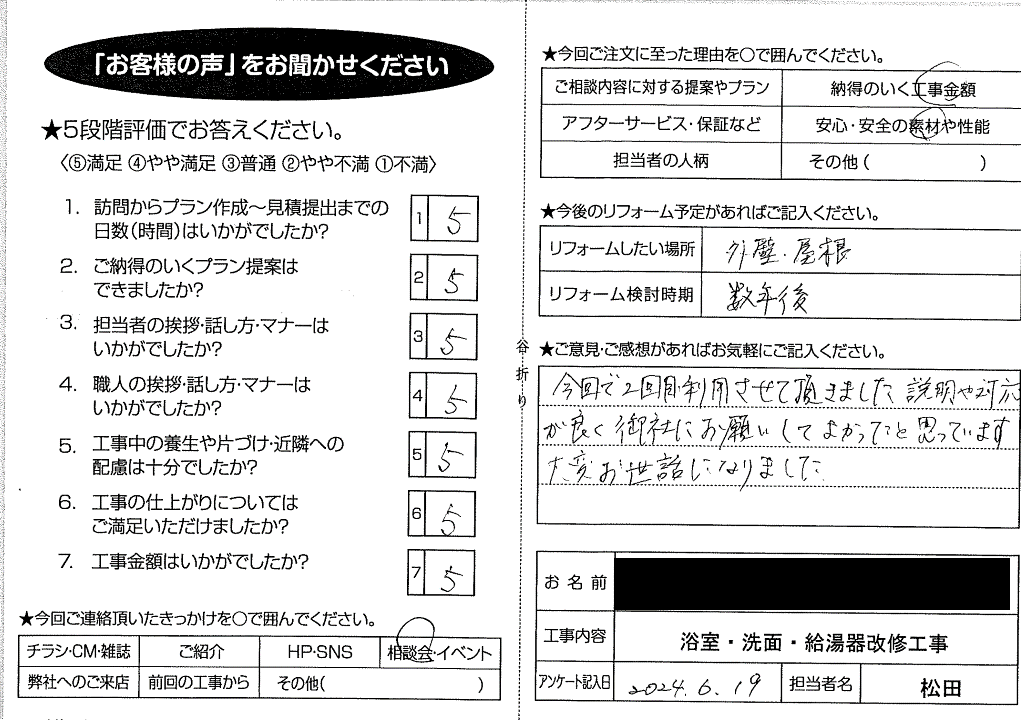 「お客様の声」をお聞かせください
★5段階評価でお答えください。
〈⑤満足 ④やや満足 ③普通 ②やや不満 ①不満〉
1. 訪問からプラン作成～見積提出までの
日数(時間)はいかがでしたか?
1 5
2. ご納得のいくプラン提案は
できましたか?
2 5
3. 担当者の挨拶・話し方・マナーは
いかがでしたか?
3 5
4. 職人の挨拶・話し方・マナーは
いかがでしたか?
4 5
5. 工事中の養生や片づけ・近隣への
配慮は十分でしたか?
5 5
6. 工事の仕上がりについては
ご満足いただけましたか?
6 5
7. 工事金額はいかがでしたか?
7 5
★今回ご連絡頂いたきっかけを○で囲んでください。
チラシ・CM・雑誌 ご紹介 HP・SNS 相談会・イベント
弊社へのご来店 前回の工事から その他( )
谷折り
★今回ご注文に至った理由を○で囲んでください。
ご相談内容に対する提案やプラン 納得のいく工事金額
アフターサービス・保証など 安心・安全の素材や性能
担当者の人柄 その他( )
★今後のリフォーム予定があればご記入ください。
リフォームしたい場所 外壁・屋根
リフォーム検討時期 数年後
★ご意見・ご感想があればお気軽にご記入ください。
今回で2回目利用させて頂きました 説明や対応
が良く御社にお願いしてよかったと思っています
大変お世話になりました
お名前
工事内容 浴室・洗面・給湯器改修工事
アンケート記入日 2024.6.19 担当者名 松田